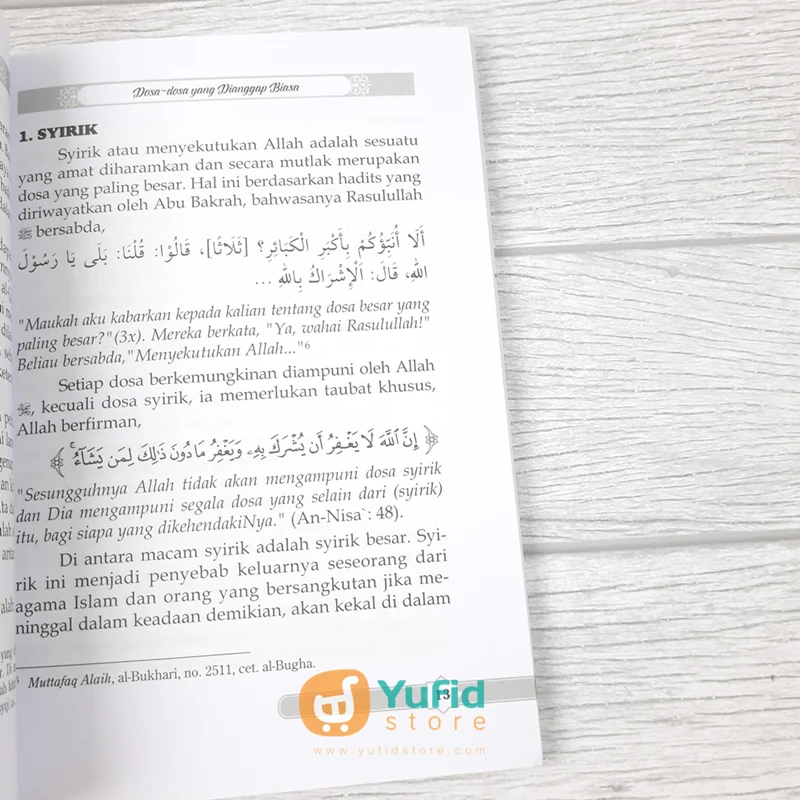 Dosa-dosa yang Dianggap Biasa
1. SYIRIK
Syirik atau menyekutukan Allah adalah sesuatu
yang amat diharamkan dan secara mutlak merupakan
dosa yang paling besar. Hal ini berdasarkan hadits yang
diriwayatkan oleh Abu Bakrah, bahwasanya Rasulullah
ﷺ bersabda,
أَلَا أُنَبِّؤُكُمْ بِأَكْبَرِ الْكَبَائِرِ؟ [ثَلَاثًا]، قَالُوْا: قُلْنَا: بَلَى يَا رَسُوْلَ
اللهِ، قَالَ: اَلْإِشْرَاكُ بِاللهِ ...
"Maukah aku kabarkan kepada kalian tentang dosa besar yang
paling besar?"(3x). Mereka berkata, "Ya, wahai Rasulullah!"
Beliau bersabda,"Menyekutukan Allah..."6
Setiap dosa berkemungkinan diampuni oleh Allah
, kecuali dosa syirik, ia memerlukan taubat khusus,
Allah berfirman,
﴿ إِنَّ ٱللَّهَ لَا يَغْفِرُ أَن يُشْرَكَ بِهِۦ وَيَغْفِرُ مَا دُونَ ذَٰلِكَ لِمَن يَشَآءُ ۚ ﴾
"Sesungguhnya Allah tidak akan mengampuni dosa syirik
dan Dia mengampuni segala dosa yang selain dari (syirik)
itu, bagi siapa yang dikehendakiNya." (An-Nisa`: 48).
Di antara macam syirik adalah syirik besar. Syi-
rik ini menjadi penyebab keluarnya seseorang dari
agama Islam dan orang yang bersangkutan jika me-
ninggal dalam keadaan demikian, akan kekal di dalam
Muttafaq Alaih, al-Bukhari, no. 2511, cet. al-Bugha.
13
Yufid
store
www.yufidstore.com